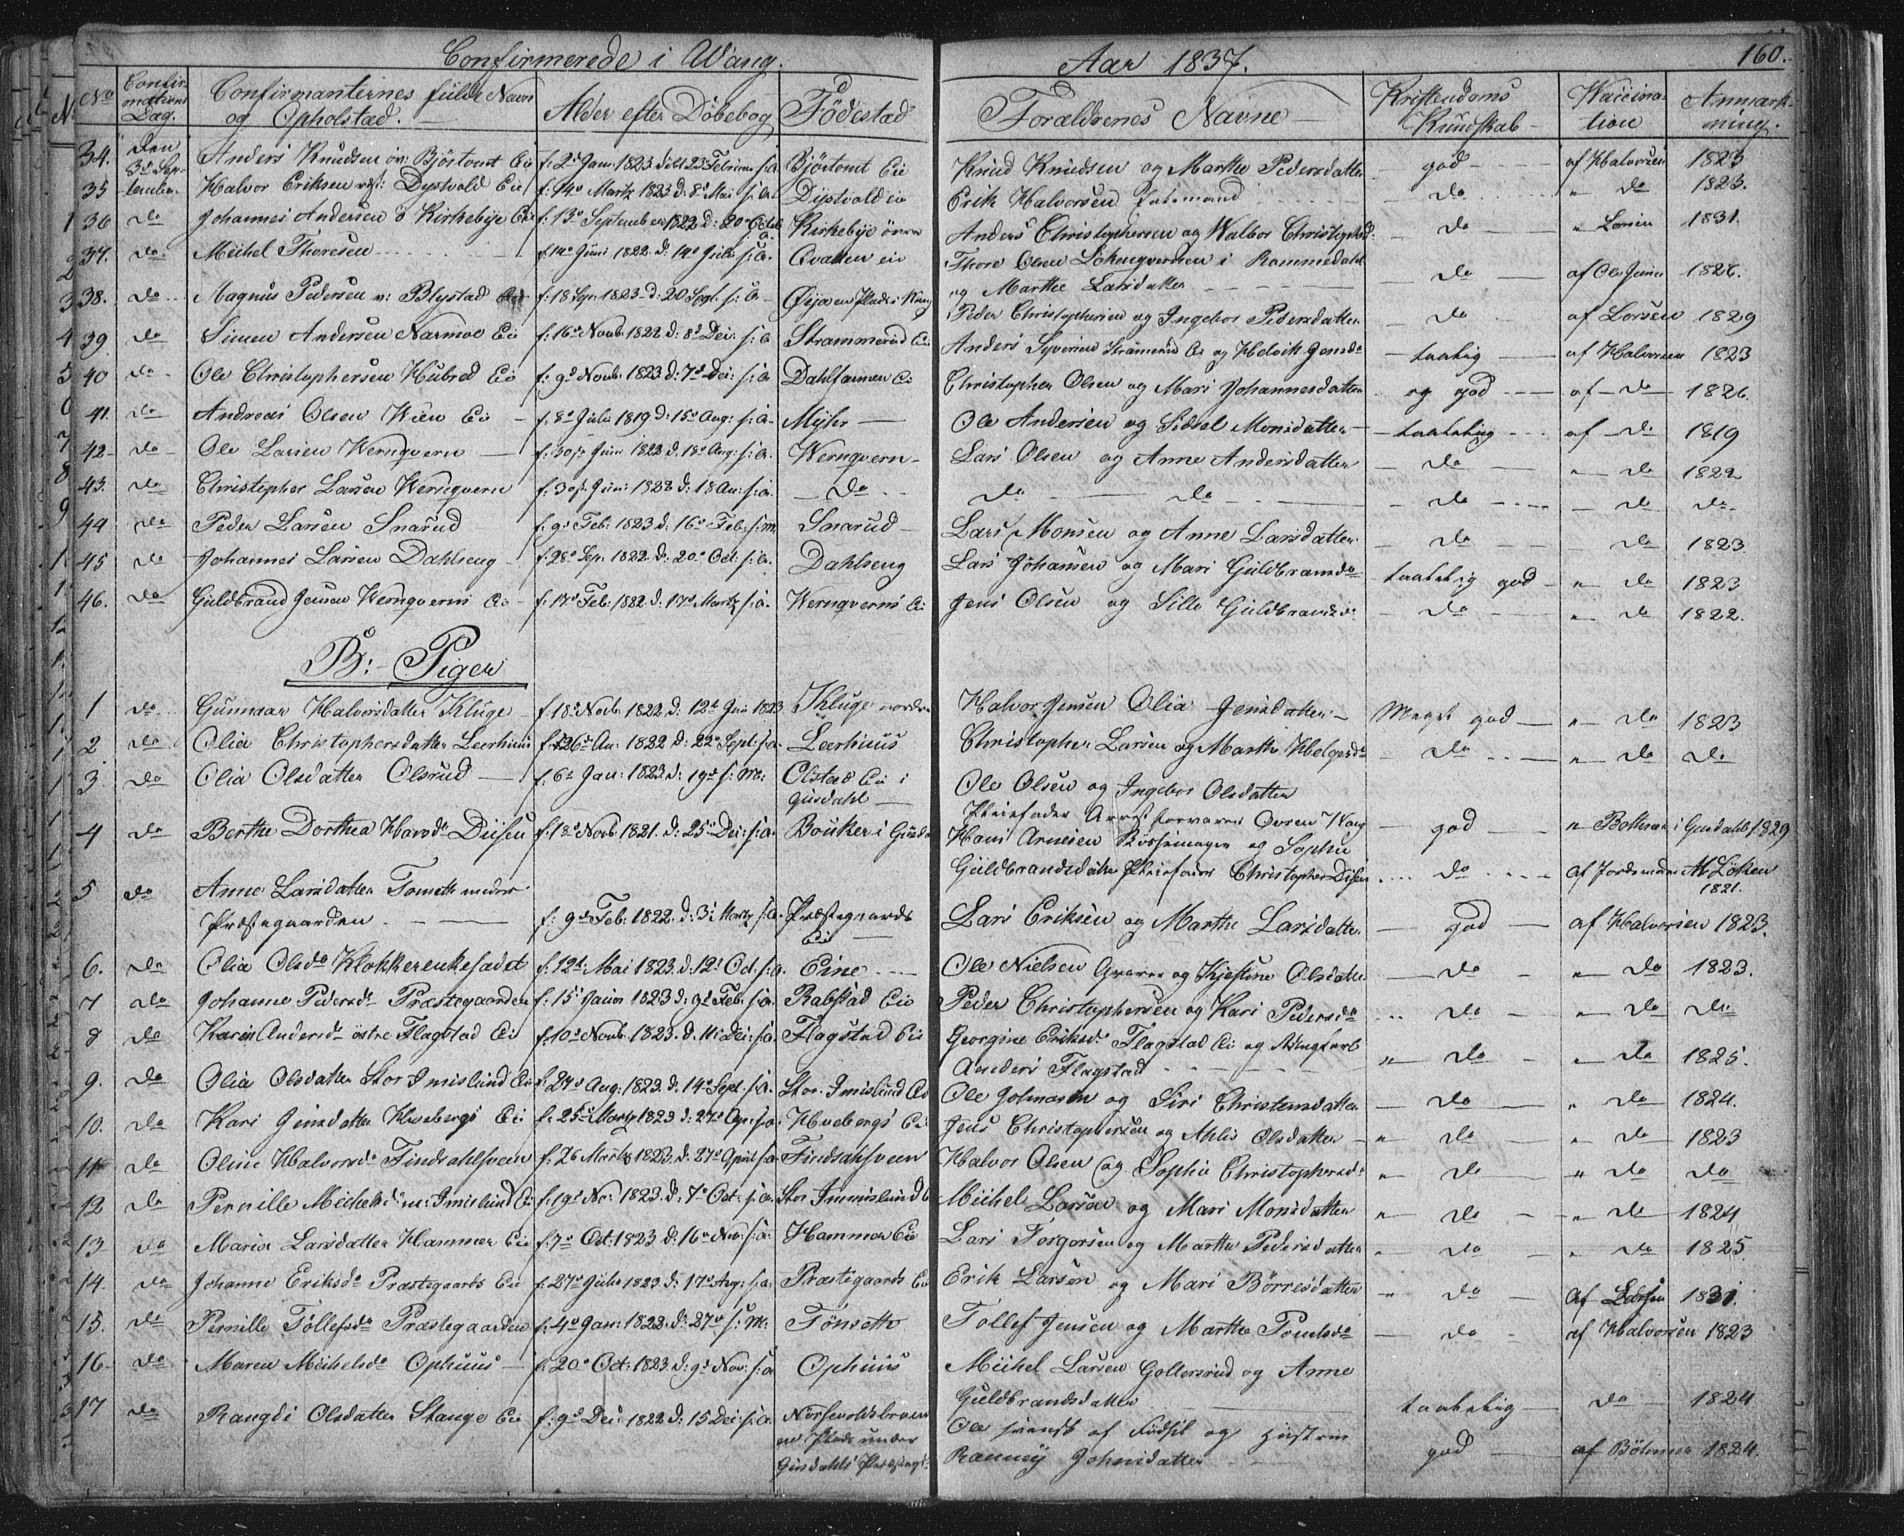 Confirmerede i Wang. Aar 1837. 160.
No Confirmations Dag. Confirmanternes fulde Navn og Opholstad. Alder efter Döbebog Födestad Forældrenes Navne Kristendoms Kundskab Vaccination Anmærkning.
34. Den 3d September Anders Knudsen Bjöstomt Eie f: 2d Jan: 1823 Bjöstomt Eie Knud Knudsen og Marthe Pedersdatter god af Halvorsen 1823
35 Halvor Eriksen Dystvold Eie f: 14d Martz 1823 d: 8d Mai s: A. Dystvold eie Erik Halvorsen do " do 1823.
36 do Johannes Andersen ö Kirkebye Eie f: 13d September 1822 d: 20d Octob s: a. Kirkebye övre Anders Christophersen og Walbor do " Larsen 1831.
37. do Michel Thoresen f: 14d Juni 1822 d: 14d Julii s: A. Qvallen eie Thore Olsen i Rommedahl og Marthe Larsdatter do af Ole Jensen 1826.
38. do Magnus Pedersen Blystad Eie f: 18 Sep: 1823 d: 20 Sept s: A Peder Christophersen og Ingebor Pedersdatter do af Larsen 1829
39. do Simen Andersen Narmoe Eie f: 16d Novb: 1822 d: 8d Dec: s: A Strammerud Eie Anders Syversen Strammerud Eie og taalelig af Halvorsen 1823
40 do Ole Christophersen Hubred Eie f: 9d Novb: 1823 d: 7d Dec: s: A Christopher Olsen og Mari Johannesdatter og god af do 1826.
41. do Andreas Olsen Wien Eie f: 8d Julii 1819 d: 15d Aug: s: A. Myhr Ole Andersen og Sidsel Monsdatter taalelig af do 1819
42. do Ole Larsen Wernqvern f: 30te Juni 1822 d: 18d Aug: s: A. Wernqvern Lars Olsen og Anne Andersdatter do " do 1822
43. do Christopher Larsen Wernqvern f: 30te Juni 1822 d: 18 Au: s: A. do do do do do do.
44 do Peder Larsen Snarud f: 9d Feb: 1823 d: 16d Feb: s: M. Snarud Lars Monsen og Anne Larsdatter do do 1823
45 do Johannes Larsen Dahlseng f: 28d Sep: 1822 d: 20d Oct: s: A. Dahlseng Lars Johansen og Mari Guldbrandsdr taalelig god " do 1823
46. do Guldbrand Jensen Wernqverns Eie f: 17d Feb: 1822 d: 17d Martz s: A. Wernqverns Ei Jens Olsen og Sille Guldbrandsd: do " do 1822.
B: Piger
1 do Gunnaar Halvorsdatter Kluge f: 18d Novb: 1822 d: 12t Jan 1823 Kluge nordre Halvor Jensen Olia Jensdatter Meget god " do 1823
2. do Olia Christophersdatter Leerhuus f: 26d Au: 1822 d: 22d Sept: s: a Leerhuus Christopher Larsen og Marthe Helgesdr do " do do
3. do Olia Olsdatter Olsrud f: 6t Jan: 1823 d: 19d s: M: Olstad Eie i Gusdahl Ole Olsen og Ingebor Olsdatter Pleiefader Ovren Wang god " i Gusdahl 1829
4 do Berthe Dorthea Hansdr Disen f: 18d Novb: 1821. d: 25d Dec: s: A: Hans Arnesen og Sophie Guldbrandsdatter Pleiefader Christopher Disen do af Jordemoder M. Löken 1821.
5 do Anne Larsdatter Tomette under Præstegaarden f: 9de Feb: 1822. d: 3d Martz s: A. Præstegaards Eie Lars Eriksen og Marthe Larsdatter god af Halvorsen 1823.
6. do Olia Olsdr Klokkerenkesædet f: 12t Mai 1823. d: 12t Oct: s: A. Eine Ole Nielsen Graver og Kjestine Olsdatter do " do 1823.
7 do Johanne Pedersdr Præstegaarden f: 15d Januar 1823 d: 9d Feb: s: A: Rabstad Eie Peder Christophersen og Kari Pedersdr do " do do
8 do Karen Andersdr östre Flagstad Eie f: 10d Novb: 1823. d: 11t Dec: s: A: Flagstad Eie Georgine Eriksdr Flagstad Eie og Anders Flagstad " do " do 1825.
9. do Olia Olsdatter Stor Imislund Eie f: 27d Aug: 1823. d: 14d Sept: s: A. Stor Imislund Ei Ole Johansen og Siri Christensdatter do " do 1824.
10. do Kari Jensdatter Hvebergs Eie f: 25d Martz 1823 d: 27d Apr: s: a. Hvebergs Ei Jens Christophersen og Ahlis Olsdatter " do " do 1823
11 do Oline Halvorsdr Findsahlsveen f: 26 Martz 1823 d: 27d April s: A Findsahlsveen Halvor Olsen og Sophie Christophersdr " do " do do
12 do Pernille Michelsdr m: Imislund Ei f: 19d Nov: 1823. d: 7d Oct: s: A. Stor Immislund Michel Larsen og Mari Monsdatter " do " do 1824
13. do Maria Larsdatter Hammer Eie f: 7d Oct: 1823 d: 16d Nov: s: A. Hammer Eie Lars Torgersen og Marthe Pedersdatter " do " do 1825
14. do Johanne Eriksdr Præstegaards Eie f: 27d Julii 1823 d: 17d Aug: s: A: Præstegaards Ei Erik Larsen og Mari Börresdatter " do af Larsen 1831.
15. do Pernille Tollefsdr Præstegaarden f: 4d Jan: 1822. d: 27d s: M: Tönsette Tollef Jensen og Marthe Pouelsdr do af Halvorsen 1823
16. do Maren Michelsdr Ophuus f: 20d Oct: 1823. d: 9d Nov: s: A Ophuus Michel Larsen Gollersrud og Anne Guldbrandsdatter taalelig do 1824
17 do Rangdi Olsdatter Stange Eie f: 9d Dec: 1822 d: 15 Dec: s: A: en Plads under Gusdahls Præstegd: Ole svensk af Födsel og Hustru Ranney Johnsdatter god af Böhmer 1824.